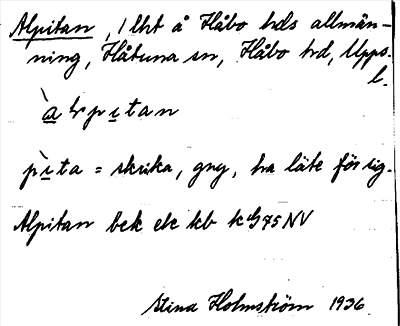 Alpitan, 1 lht å Håbo hds allmän-
ning, Håtuna sn, Håbo hd, Upps.
l.
pitan
pìta = skrika, gny, ha läte för sig.
Alpitan bek ek kb kG75NV
Stina Holmström 1936